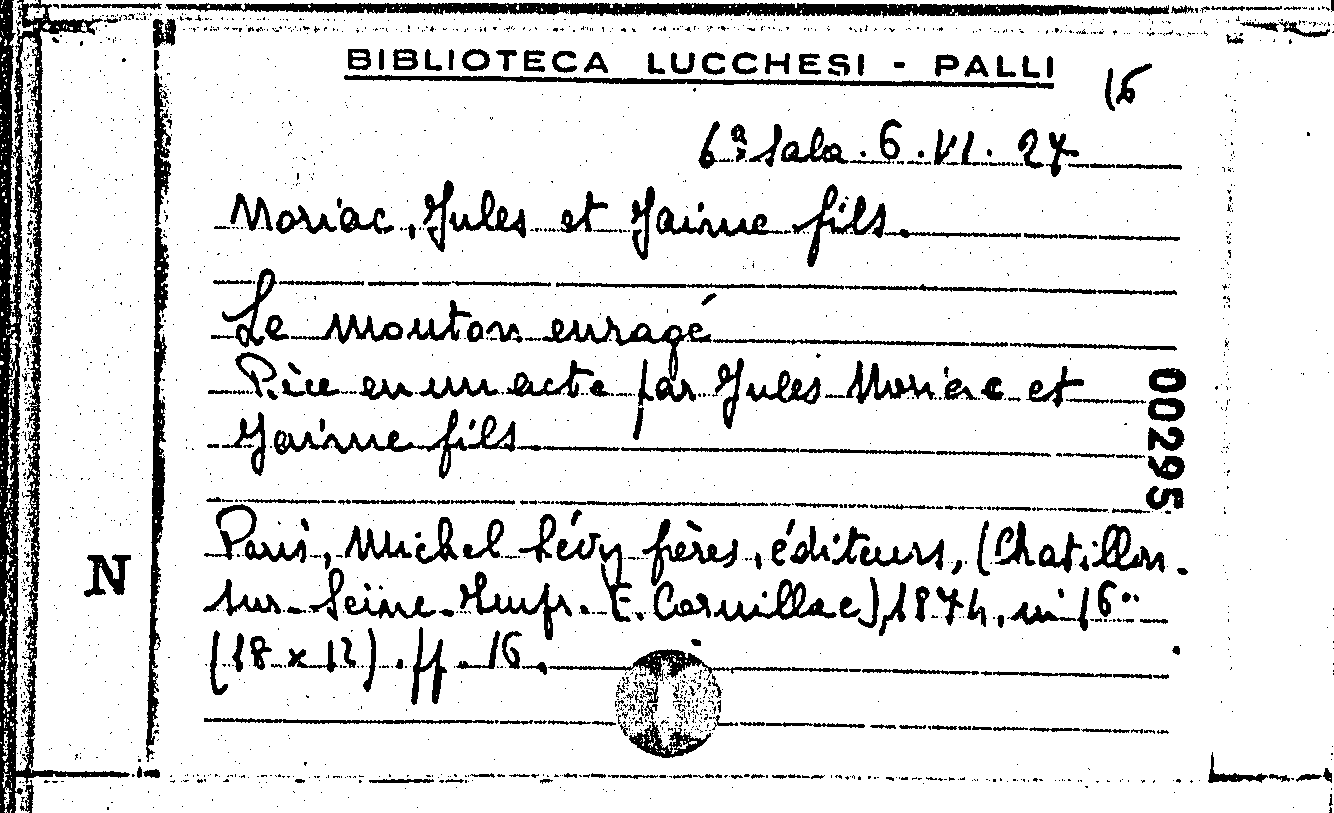 BIBLIOTECA LUCCHESI - PALLI
16
6ª Sala. 6. VI. 27
Noriac, Jules et Jaime fils.
Le mouton enragé
Pièce en un acte par Jules Noriac et
Jaime fils
00295
Paris, Michel Lévy frères, éditeurs, (Chatillon-
N
sur-Seine-Impr. E. Cornillac), 1874, in 16°
(18 x 12). pp. 16.